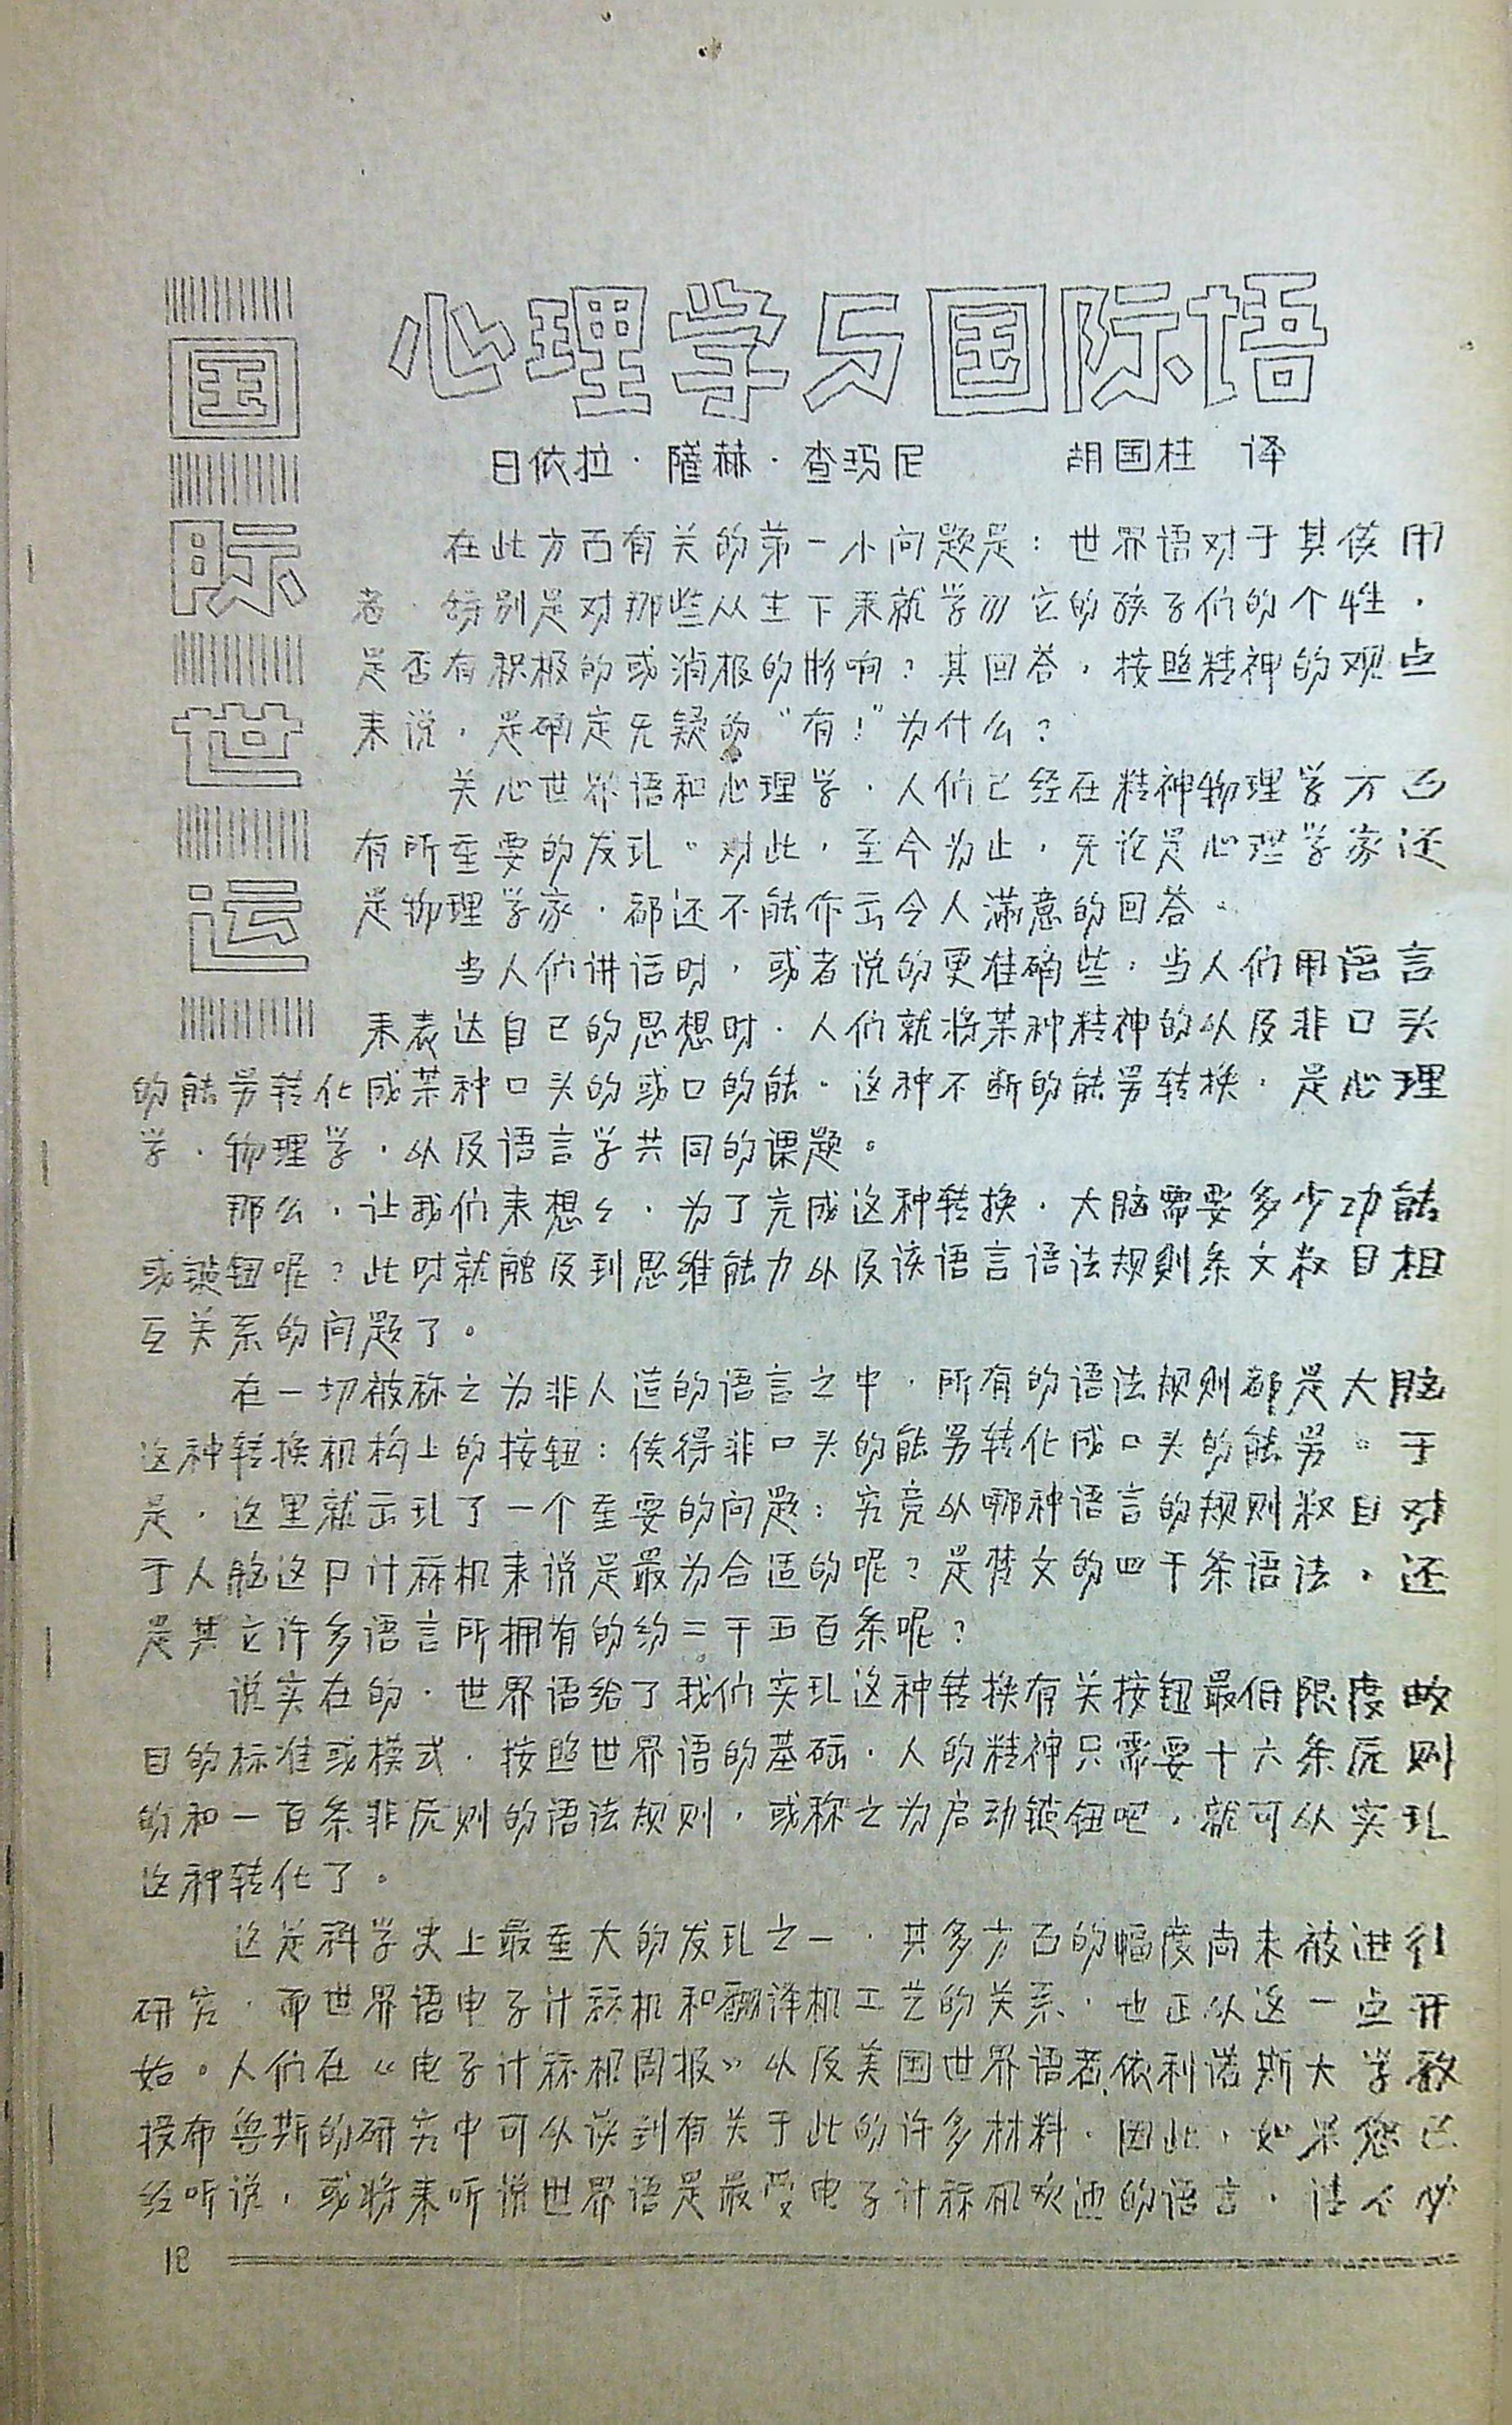 国际世运
心理学与国际语
日依拉·薩赫·查玛尼 胡国柱 译
在此方面有关的第一个问题是：世界语对于其使用
者，特别是对那些从生下来就学习它的孩子们的个性，
是否有积极的或消极的影响？其回答，按照精神的观点
来说，是确定无疑的“有！”为什么？
关心世界语和心理学，人们已经在精神物理学方面
有所重要的发现。对此，至今为止，无论是心理学家还
是物理学家，都还不能作出令人满意的回答。
当人们讲话时，或者说的更准确些，当人们用语言
来表达自己的思想时，人们就将某种精神的以及非口头
的能量转化成某种口头的或口的能。这种不断的能量转换，是心理
学，物理学，以及语言学共同的课题。
那么，让我们来想想，为了完成这种转换，大脑需要多少功能
或键钮呢？此时就触及到思维能力以及该语言语法规则条文数目相
互关系的问题了。
在一切被称之为非人造的语言之中，所有的语法规则都是大脑
这种转换机构上的按钮：使得非口头的能量转化成口头的能量。于
是，这里就出现了一个重要的问题：究竟以哪种语言的规则数目对
于人脑这部计算机来说是最为合适的呢？是梵文的四千条语法，还
是其它许多语言所拥有的约三千五百条呢？
说实在的，世界语给了我们实现这种转换有关按钮最低限度数
目的标准或模式，按照世界语的基础，人的精神只需要十六条原则
的和一百条非原则的语法规则，或称之为启动键钮吧，就可以实现
这种转化了。
这是科学史上最重大的发现之一，其多方面的幅度尚未被进行
研究，而世界语电子计算机和翻译机工艺的关系，也正从这一点开
始。人们在《电子计算机周报》以及美国世界语者、依利诺斯大学教
授布鲁斯的研究中可以读到有关于此的许多材料。因此，如果您已
经听说，或将来听说世界语是最受电子计算机欢迎的语言，请不必
18